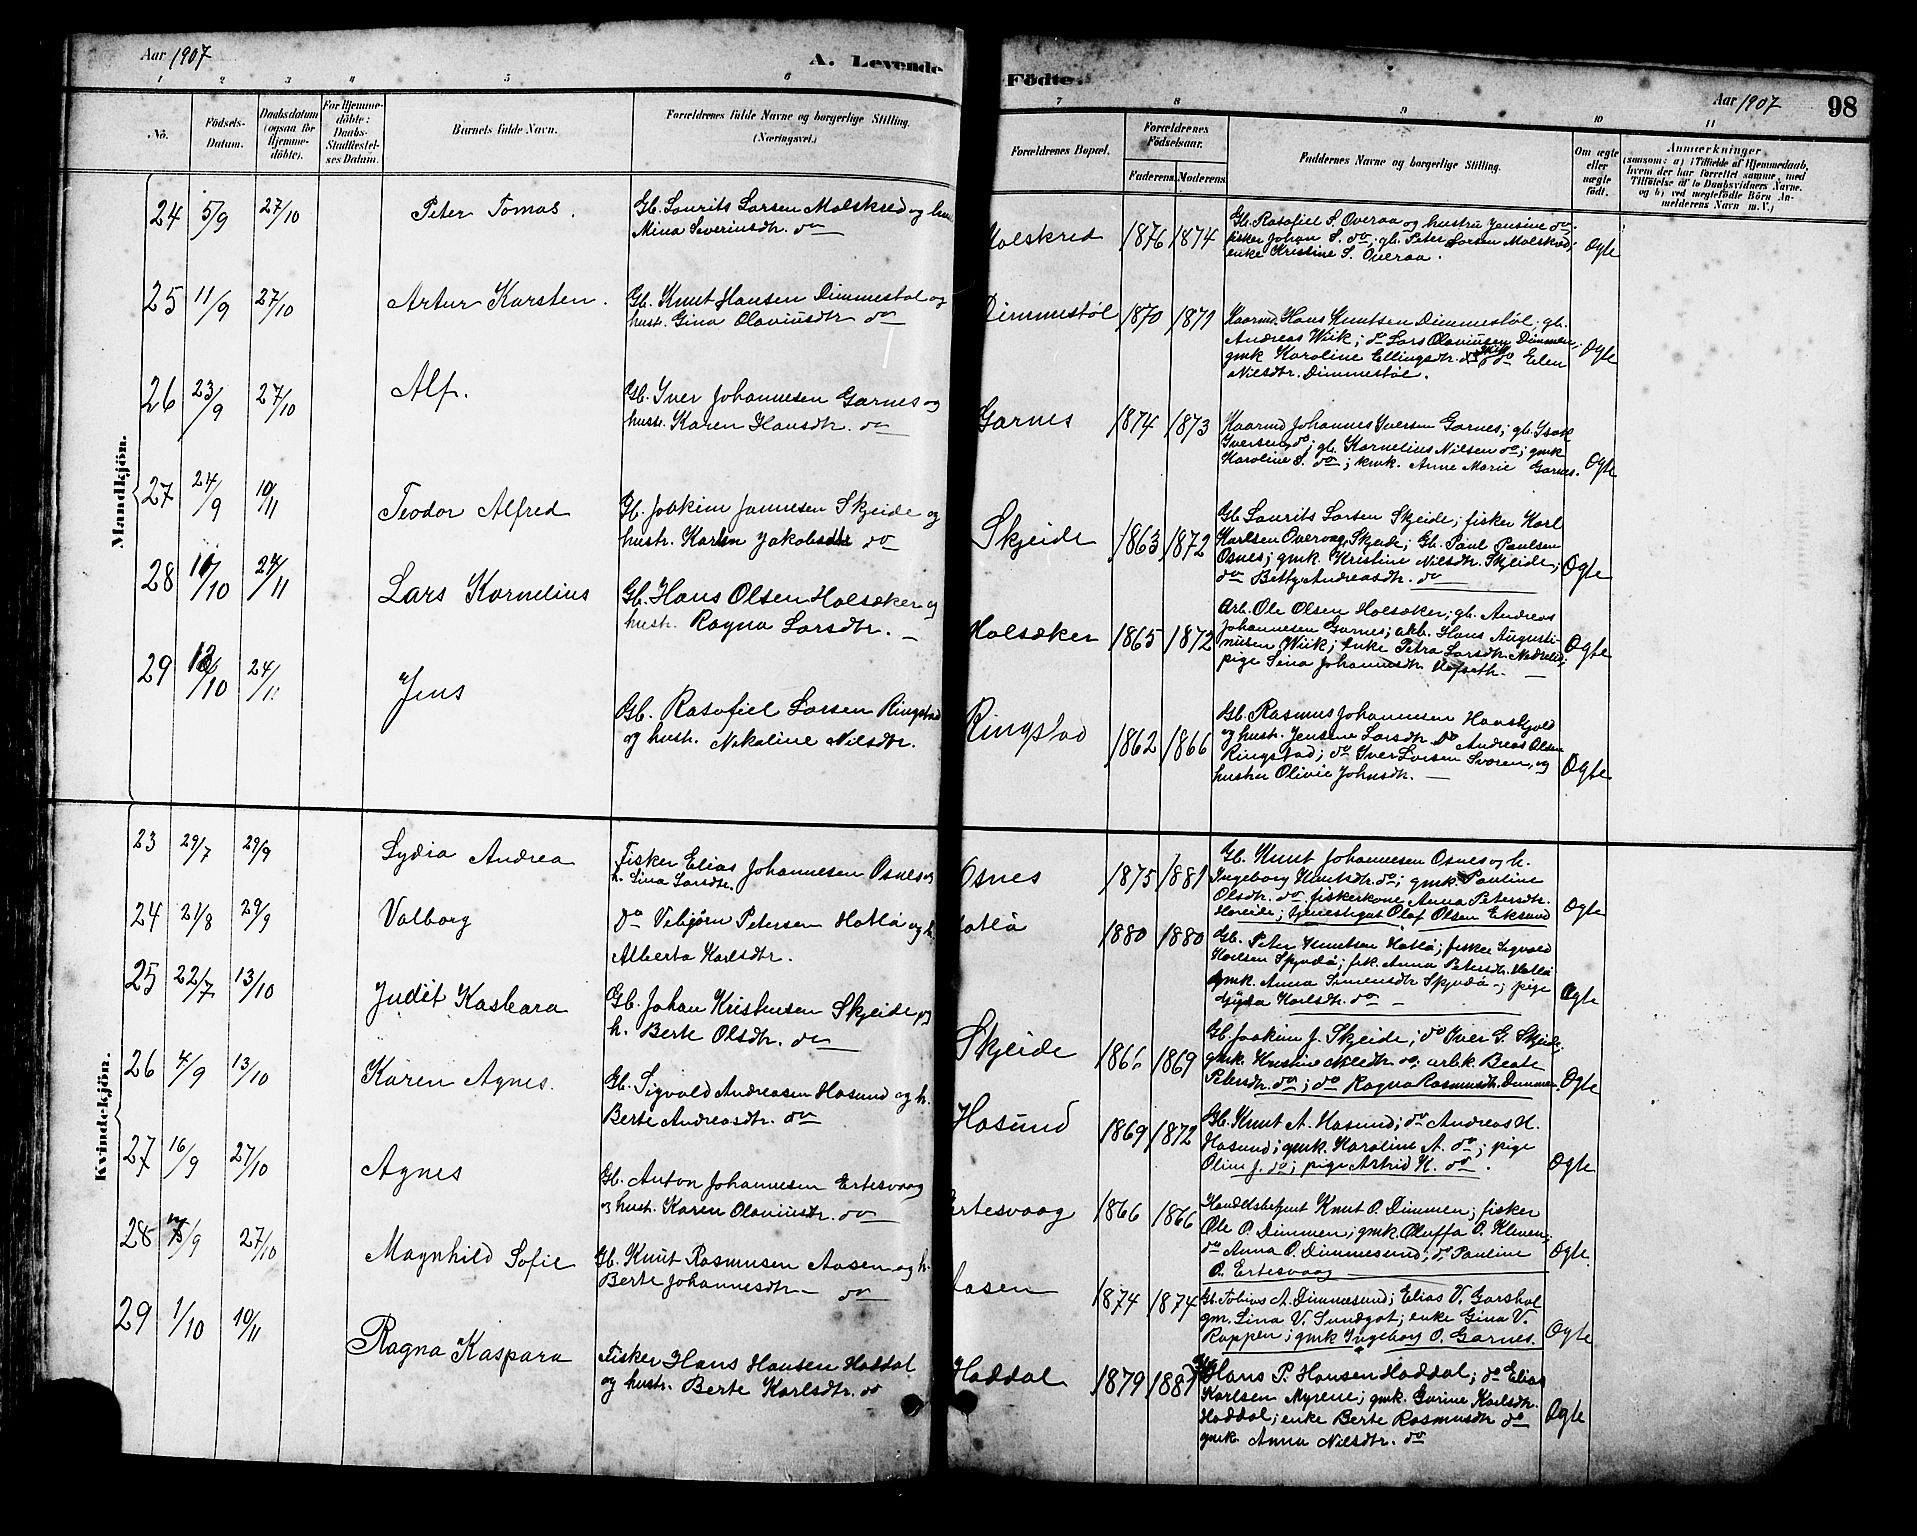 Aar 1907
A. Levende
Födte.
Aar 1907
98
1 2 3 4 5 6 7 8 9 10 11
No.
Födsels-Datum.
Daabsdatum (ogsaa for Hjemme-döbte).
For Hjemme-döbte: Daabs-Stadfæstel-ses Datum.
Barnets fulde Navn.
Forældrenes fulde Navne og borgerlige Stilling.
(Næringsvei.)
Forældrenes Bopæl.
Forældrenes Födselsaar.
Faderens. Moderens.
Faddernes Navne og borgerlige Stilling.
Om ægte eller uægte födt.
Anmærkninger
(saasom: a) i Tilfælde af Hjemmedaab,
hvem der har forrettet samme, med
Tilföielse af to Daabsvidners Navne,
og b) ved uægtefödte Börn An-
melderens Navn m. V.)
Mandkjön.
24 5/9 27/10 Peter Tomas.
Gb. Laurits Larsen Molskred og
Mina Severinsdtr. do
Molskred 1876 1874
Gb. Rasofiel S. Overaa og hustru Jensine do;
fisker Johan S. do; gb. Peter Larsen Molskred;
enke Kristine S. Overaa.
Ægte
25 11/9 27/10 Artur Karsten.
Gb. Knut Hansen Dimmestøl og
hust. Gina Olaviusdtr. do
Dimmestøl 1870 1871
Kaarmd. Hans Knutsen Dimmestøl; gb.
Andreas Wiik; do Lars Olaviusen Dimmen;
gmk Karoline Ellingsdtr. Wiik do Elen
Nilsdtr. Dimmestøl.
Ægte
26 23/9 27/10 Alf.
Gb. Iver Johannesen Garnes og
hust. Karen Hansdtr. do
Garnes 1874 1873
Kaarmd Johannes Iversen Garnes; gb. Isak
Iversen do; gb. Kornelius Nilsen do; gmk
Karoline S. do; kmk. Anne Marie Garnes.
Ægte
27 24/9 10/11 Teodor Alfred
Gb. Joakim Jannesen Skjeide og
hustr. Karen Jakobsdtr do
Skjeide 1863 1872
Gb. Laurits Larsen Skjeide; fisker Karl
Karlsen Overvaag Skjeide; Gb. Paul Paulsen
Osnes; gmk. Kristine Nilsdtr. Skjeide;
do Betty Andreasdtr. do
Ægte
28 10/10 24/11 Lars Kornelius
Gb. Hans Olsen Holsæker og
hustr. Ragna Larsdtr. —
Holsæker 1865 1872
Arb. Ole Olsen Holsæker; gb. Andreas
Johannesen Garnes; arb. Hans Augusti-
nusen Wiik; enke Petra Larsdtr.
pige Sina Johannesdtr. —
Ægte
29 13/10 24/11 Jens
Gb. Rasofiel Larsen Ringstad
og hustr. Nikoline Nilsdtr.
Ringstad 1862 1866
Gb. Rasmus Johannesen Haaskjold
og hust. Jensine Larsdtr do Andreas Olsen
Ringstad; do Iver Larsen Sværen, og
hustru Olivie Johnsdtr. —
Ægte
Kvindekjön.
23 29/7 29/9 Lydia Andrea
Fisker Elias Johannesen Osnes og
h. Sina Larsdtr.
Osnes 1875 1881
Gb. Knut Johannesen Osnes og h.
Ingeborg Knutsdtr. do; gmk. Pauline
Olsdtr. do fiskerkone Anna Petersdtr.
Hareide; tjenestegut Olaf Olsen Eksund
Ægte
24 21/8 29/9 Valborg
do Vebjørn Petersen Hatlø og h.
Alberta Karlsdtr.
Hatlø 1880 1880
Gb. Peter Knutsen Hatlø; fisker Sigvald
Karlsen Spjudø; frk. Anna Petersdtr. Hatlø
gmk. Anna Simensdtr Spjudø -; pige
Gyda Karlsdtr. do —
Ægte
25 22/7 13/10 Judit Kasbara
Gb. Johan Kristensen Skjeide og
h. Berte Olsdtr. do
Skjeide 1866 1869
Gb. Joakim J. Skjeide; do Over G. Skjeide;
gmk. Kristine Nilsdtr do; arbk. Beate
Petersdtr. do; do Ragna Rasmusdtr. Dimmen.
Ægte
26 4/9 13/10 Karen Agnes.
Gb. Sigvald Andreasen Hasund og h.
Berte Andreasdtr. do
Hasund 1869 1872
Gb. Knut A. Hasund; do Andreas K.
Hasund; gmk. Karoline A. do; pige
Oline J. do; pige Astrid K. do.
Ægte
27 16/9 27/10 Agnes
Gb. Anton Johannesen Ertesvaag
og hust. Karen Olaviusdtr. do
Ertesvaag 1866 1866
Handelsbetjent Knut O. Dimmen; fisker
Ole O. Dimmen; gmk. Oluffa O. Kleven;
do Anna O. Dimmesund; do Pauline
O. Ertesvaag
Ægte.
28 /9 27/10 Magnhild Sofie
Gb. Knut Rasmusen Aasen og h.
Berte Johannesdtr — do
Aasen 1874 1874
Gb. Tobias A. Dimmesund; Elias V. Garshol
gm. Lina V. Sundgot; enke Gina V.
Rappen; gmk Ingeborg O. Garnes.
Ægte
29 1/10 10/11 Ragna Kaspara
Fisker Hans Hansen Haddal
og hustr. Berte Karlsdtr. do
Haddal 1879 1887
Hans P. Hansen Haddal; do Elias
Karlsen Myrene; gmk. Gurine Karlsdtr.
Haddal; enke Berte Rasmusdtr do
gmk. Anna Nilsdtr. do
Ægte